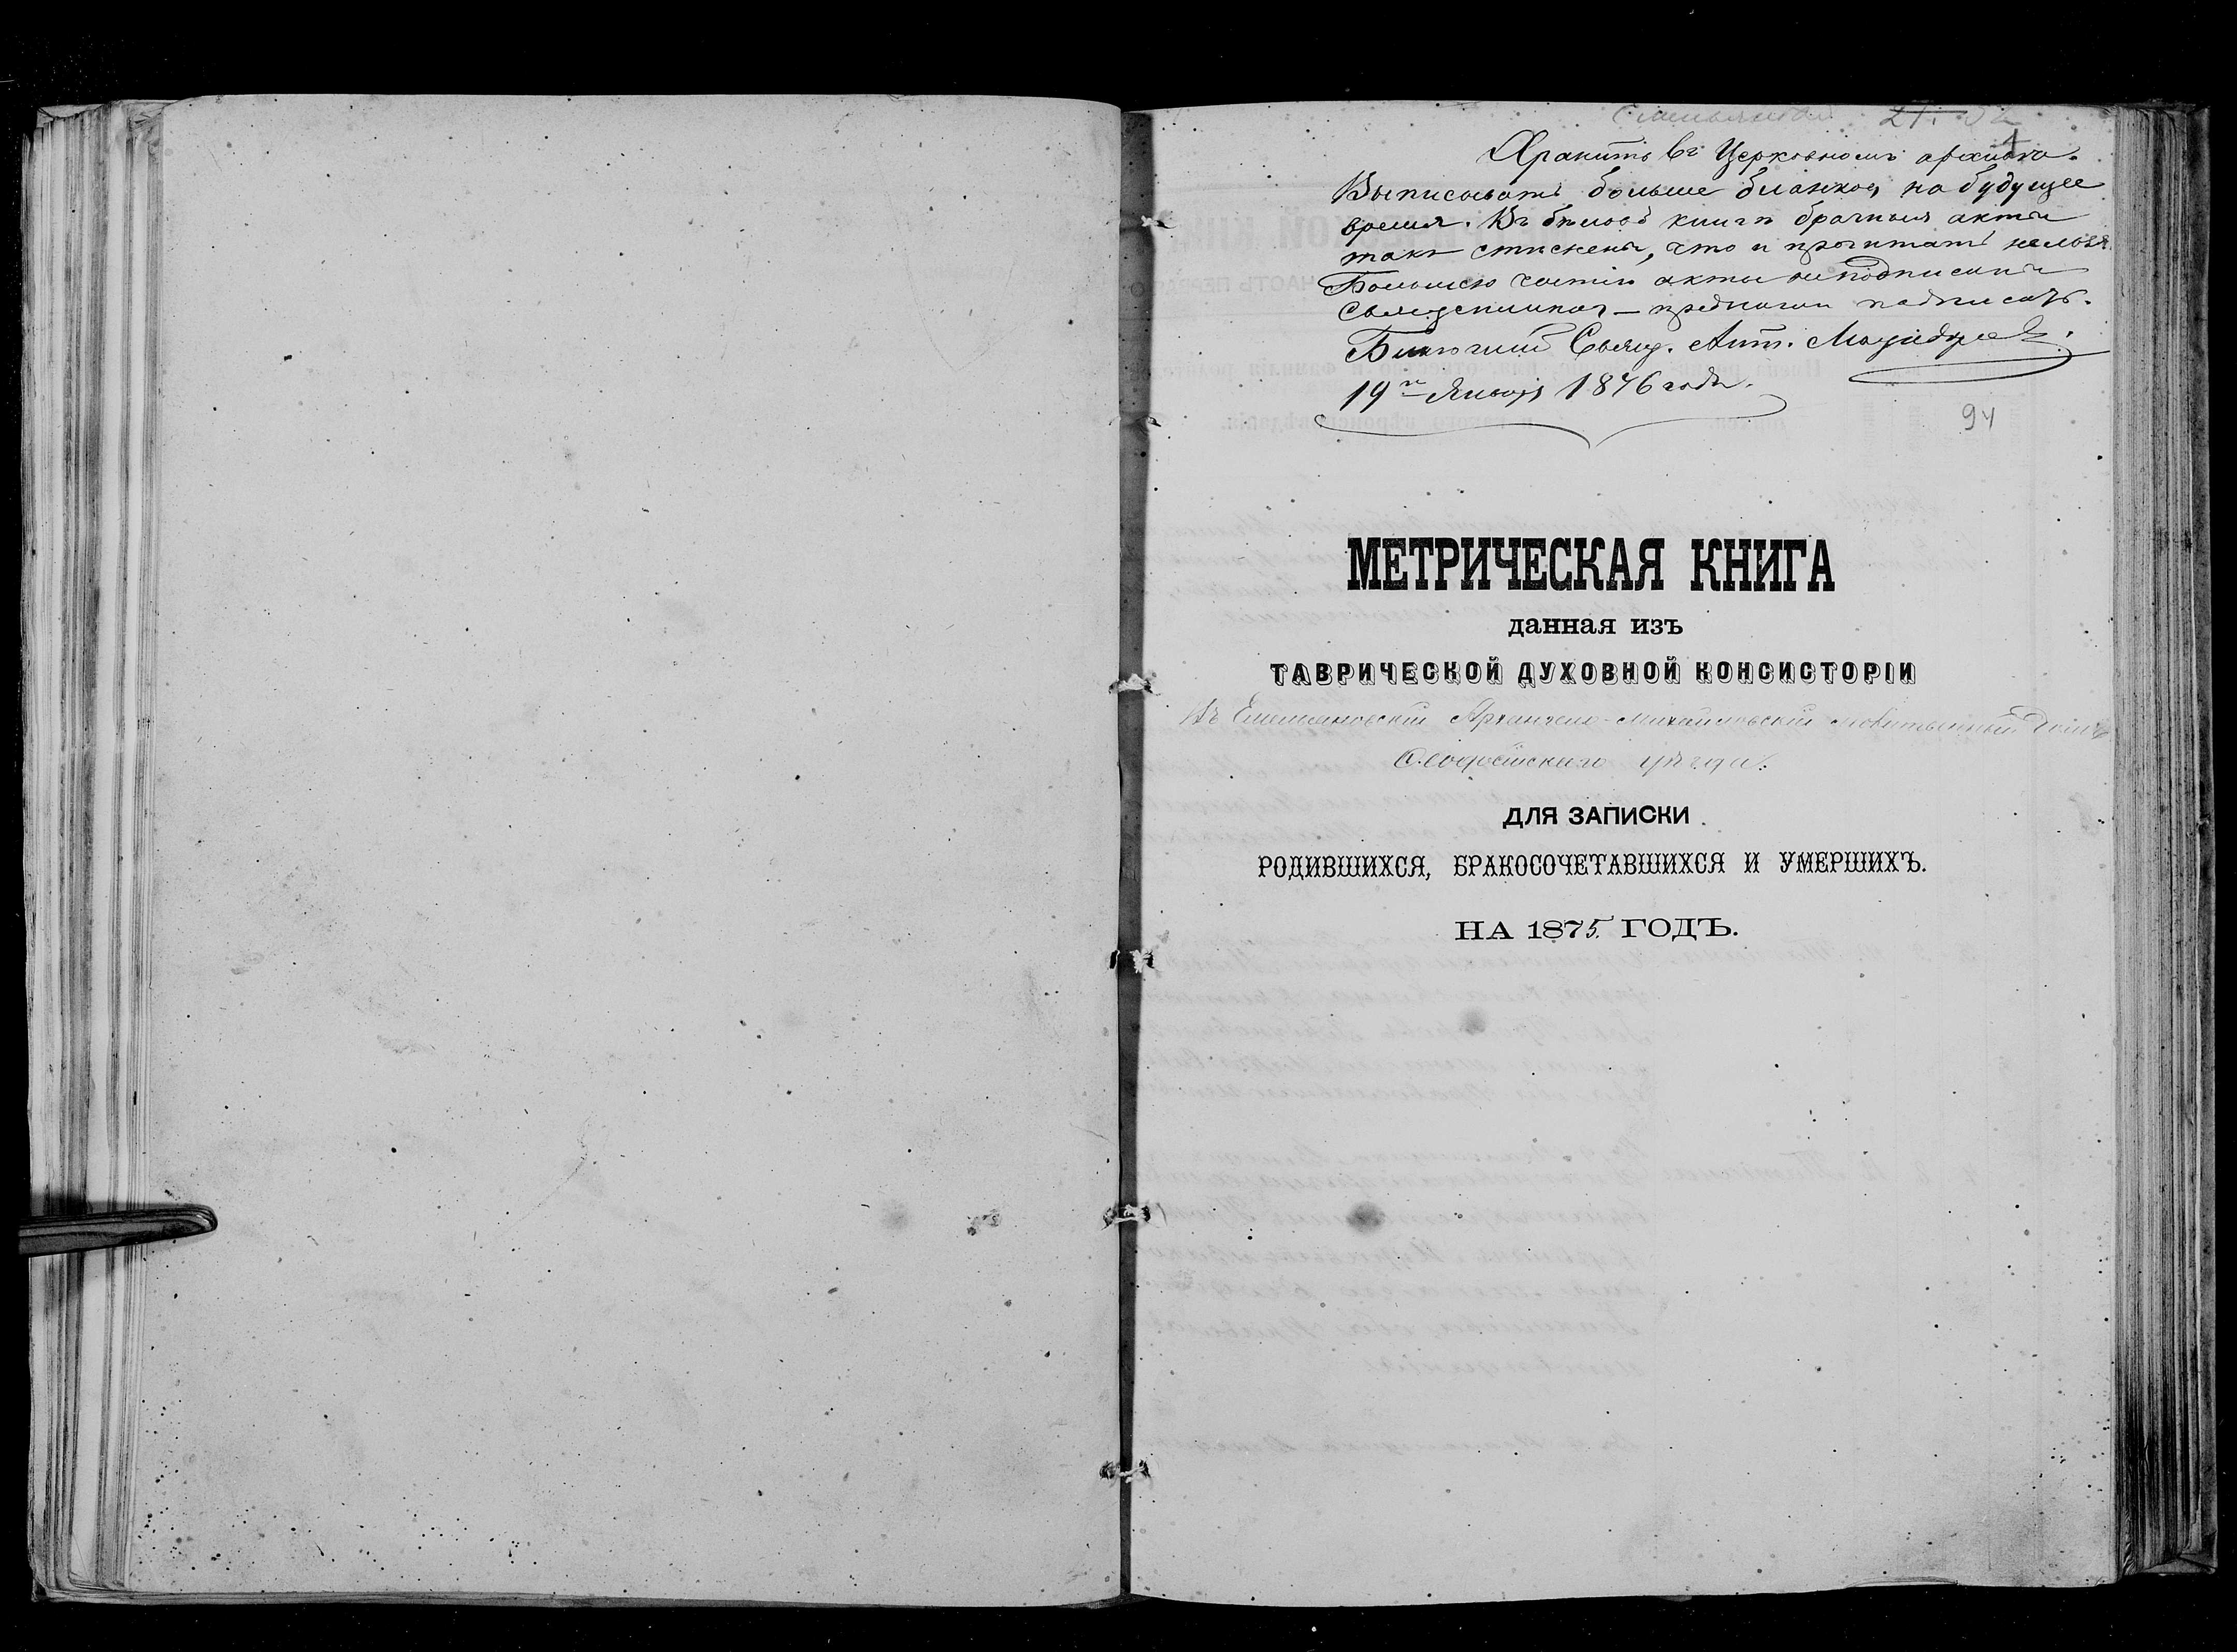 21.
1
Хранить въ Церковномъ архивѣ.
Выписывать больше бланковъ на будущее
время. Въ бѣловой книгѣ брачныя акты
такъ стиснены, что и прочитать нельзя.
Большею частію акты неподписаны
Священникомъ — предлагаю подписать.
Благочинный Свящ. Ант.
19го Января 1876 года.
94
МЕТРИЧЕСКАЯ КНИГА
данная изъ
ТАВРИЧЕСКОЙ ДУХОВНОЙ КОНСИСТОРІИ
Въ Емельяновскій Архангело-Михайловскій молитвенный домъ
Ѳеодосійскаго уѣзда.
ДЛЯ ЗАПИСКИ
РОДИВШИХСЯ, БРАКОСОЧЕТАВШИХСЯ И УМЕРШИХЪ.
НА 1875 ГОДЪ.